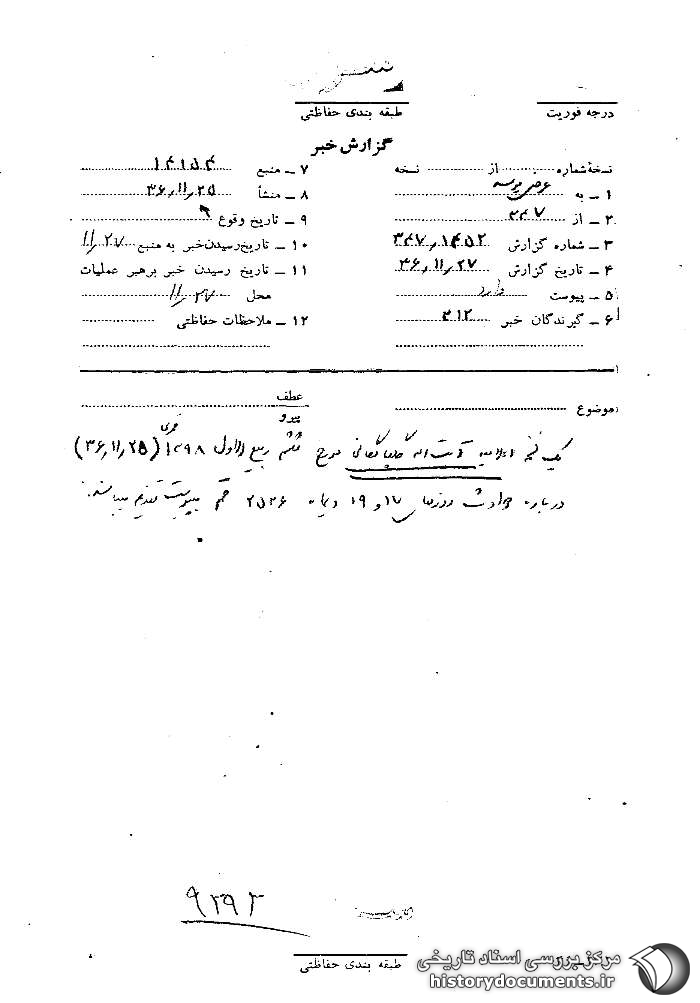 سری
درجه فوریت
طبقه بندی حفاظتی
گزارش خبر
نسخهٔ شماره از نسخه
۱ ـ به
۲ ـ از ۳۴۷
۳ ـ شماره گزارش ۳۴۷٫۱۴۵۲
۴ ـ تاریخ گزارش ۳۶٫۱۱٫۲۷
۵ ـ پیوست دارد
۶ ـ گیرندگان خبر ۳۱۲
۷ ـ منبع ۱۴۱۵۴
۸ ـ منشأ ۳۶٫۱۱٫۲۵
۹ ـ تاریخ وقوع
۱۰ ـ تاریخ رسیدن خبر به منبع ۱۱/۲۷
۱۱ ـ تاریخ رسیدن خبر برهبر عملیات
محل ۱۱/۲۷
۱۲ ـ ملاحظات حفاظتی
موضوع
عطف
پیرو
یک نسخه اعلامیه آیت اله گلپایگانی مورخ ششم ربیع الاول ۱۳۹۸ قمری (۳۶٫۱۱٫۲۵)
درباره حوادث روزهای ۱۷ و ۱۹ دیماه ۲۵۳۶ قم به پیوست تقدیم میباشد.
۹۲۹۲
طبقه بندی حفاظتی
مرکز بررسی اسناد تاریخی
historydocuments.ir